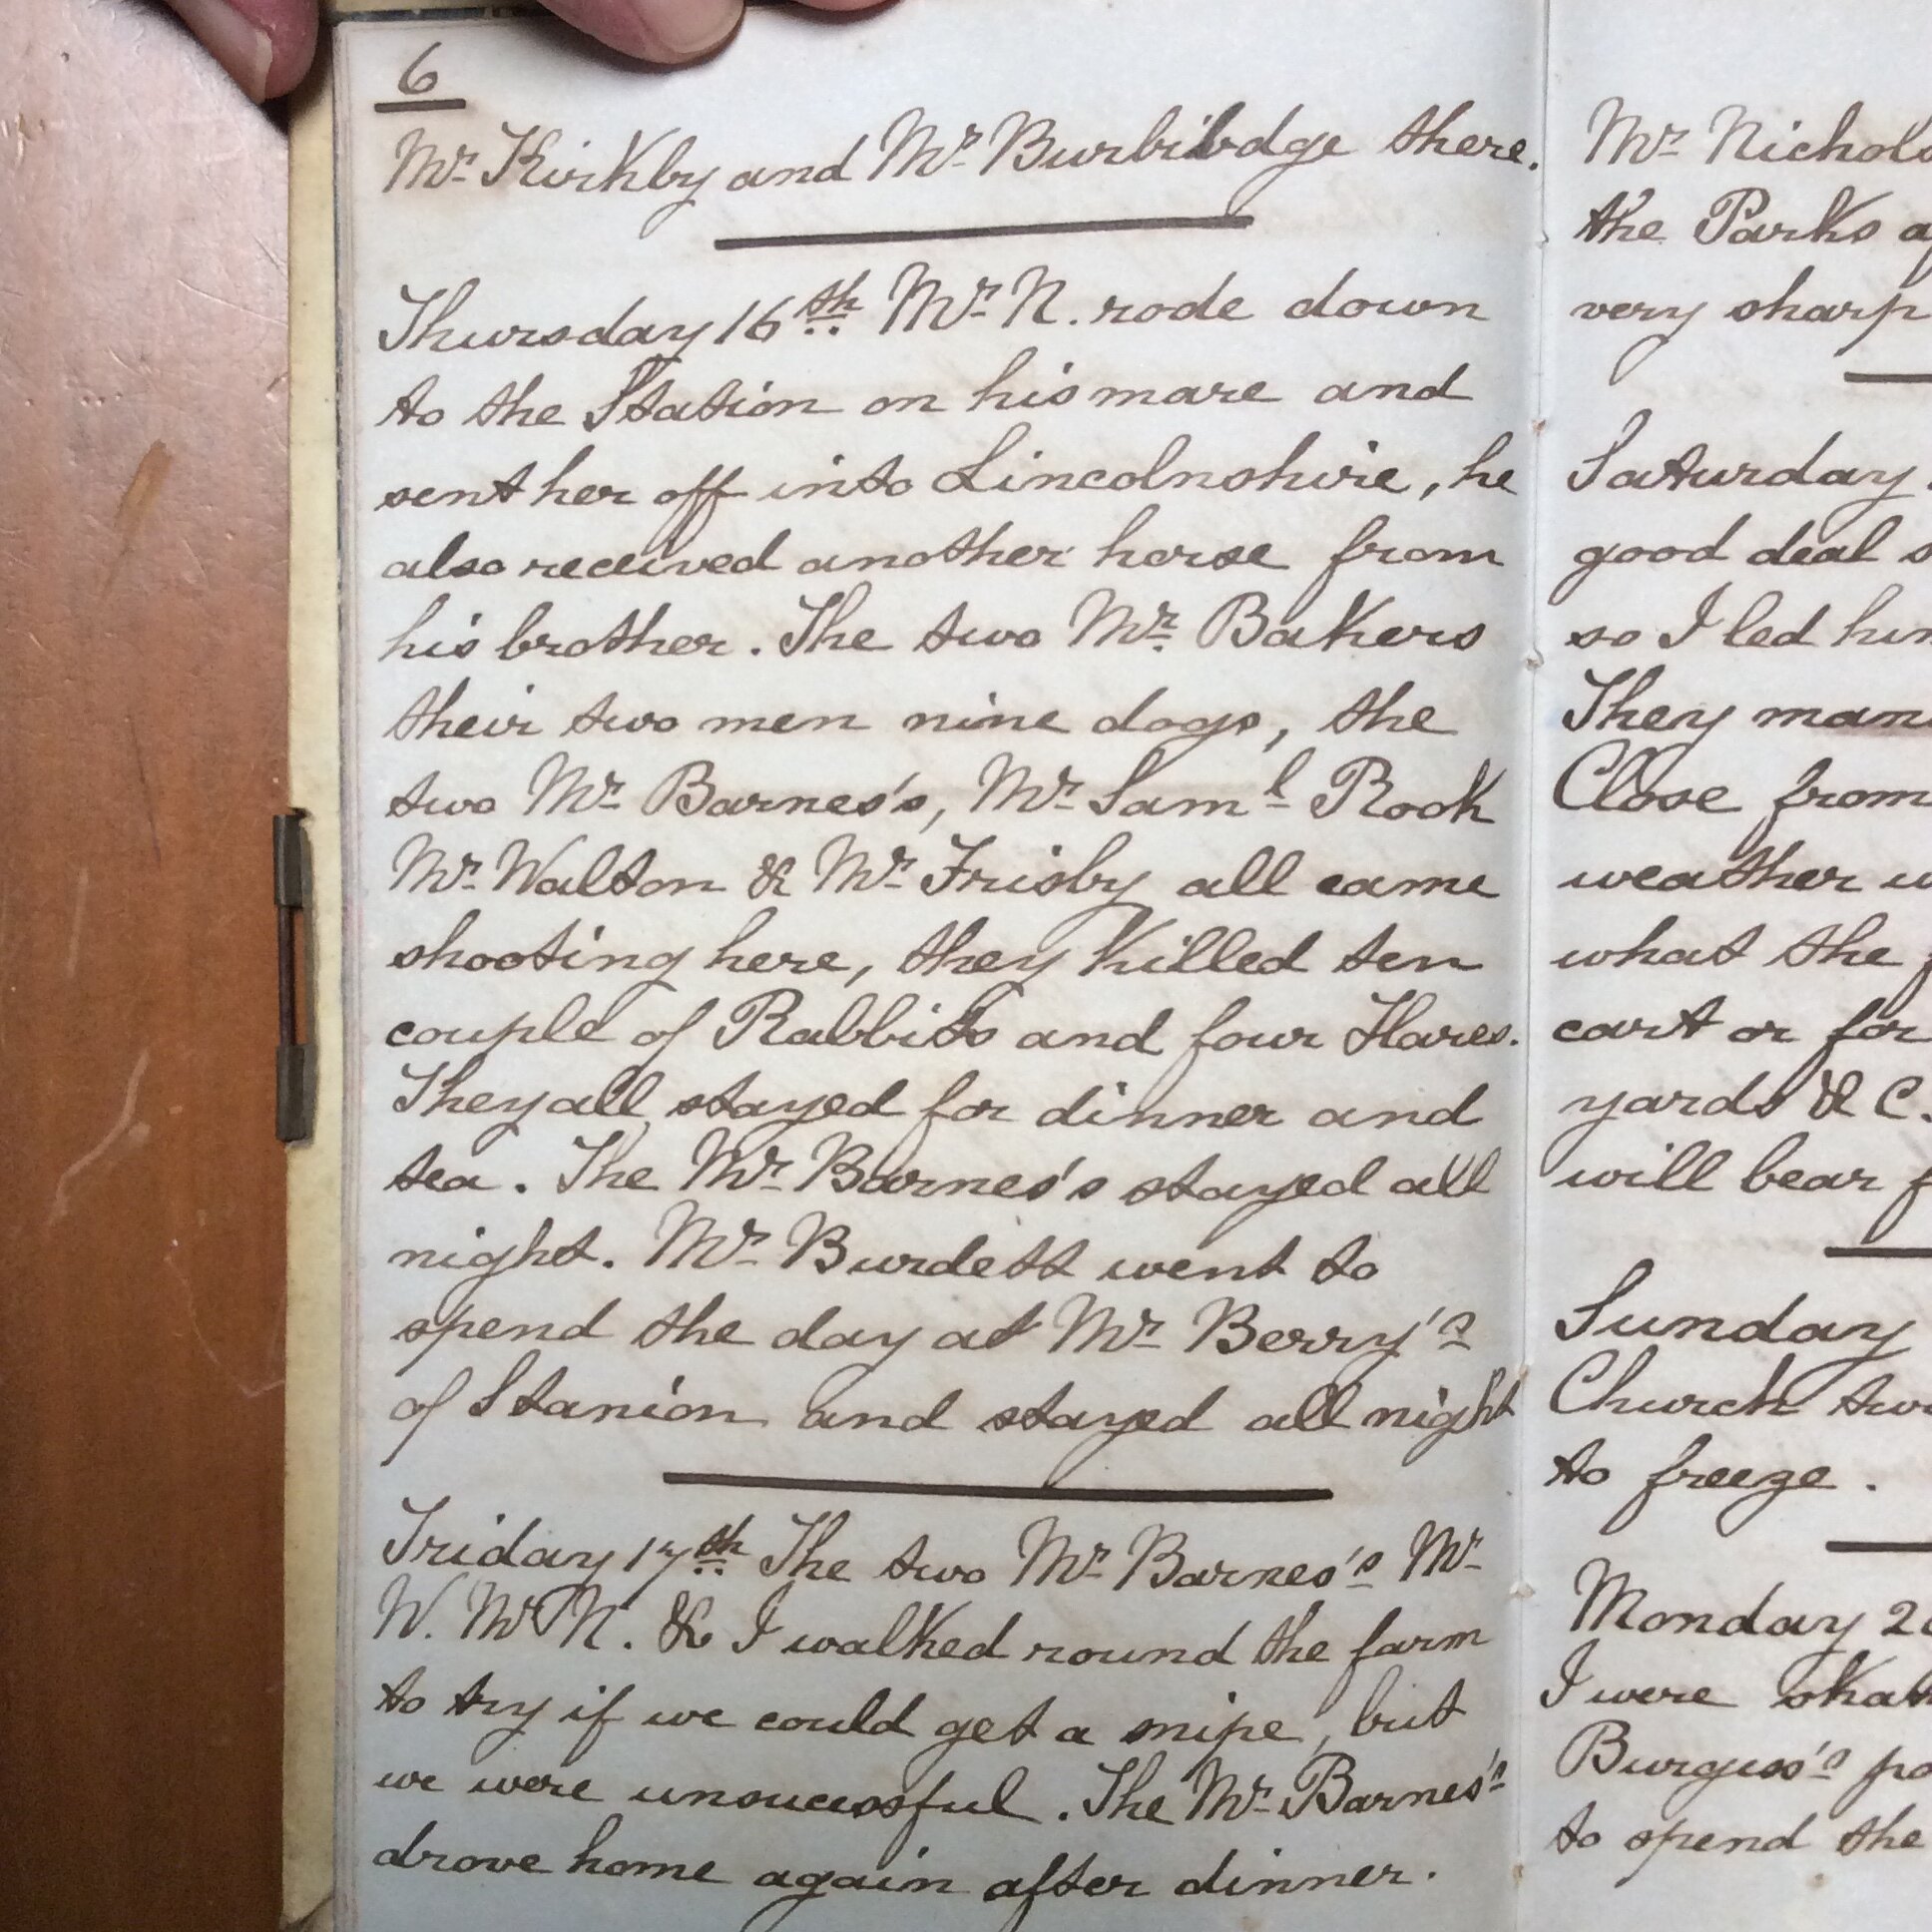 6
Mr Kirkby and Mr Burbibdge there.
Thursday 16th Mr N. rode down
to the Station on his mare and
sent her off into Lincolnshire, he
also received another horse from
his brother. The two Mr Bakers
their two men nine dogs, the
two Mr Barnes's, Mr Saml Rook
Mr Walton & Mr Frisby all came
shooting here, they killed ten
couple of Rabbits and four Hares.
They all stayed for dinner and
tea. The Mr Barnes's stayed all
night. Mr Burdett went to
spend the day at Mr Berry's
of Stanion and stayed all night
Friday 17th The two Mr Barnes's Mr
W. Mr N. & I walked round the farm
to try if we could get a snipe, but
we were unsucessful. The Mr Barnes's
drove home again after dinner.
Mr Nichols
the Parks
very sharp
Saturday
good deal
so I led
They
Close from
weather
what the
cart or for
yards & C.
will bear
Sunday
Church
to freeze.
Monday
I were
Burgess's
to spend the